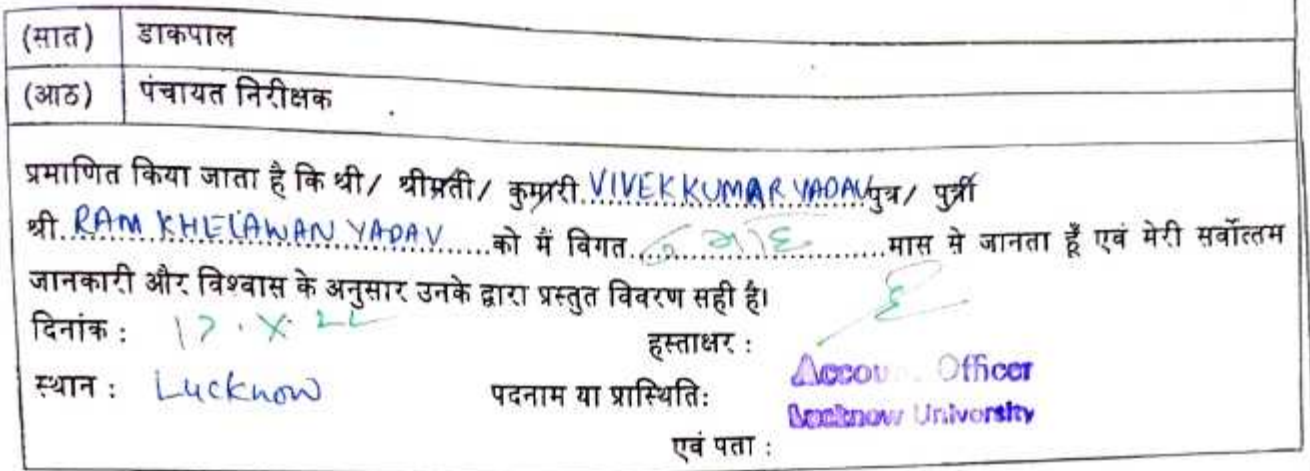 (सात) डाकपाल
(आठ) पंचायत निरीक्षक
प्रमाणित किया जाता है कि श्री/ श्रीमती/ कुमारी VIVEK KUMAR YADAV पुत्र/ पुत्री
श्री RAM KHELAWAN YADAV को मैं विगत माह मास से जानता हूँ एवं मेरी सर्वोत्तम
जानकारी और विश्वास के अनुसार उनके द्वारा प्रस्तुत विवरण सही है।
दिनांक : 17.X.22
हस्ताक्षर :
स्थान : Lucknow पदनाम या प्रास्थिति: Officer
Lucknow University
एवं पता :